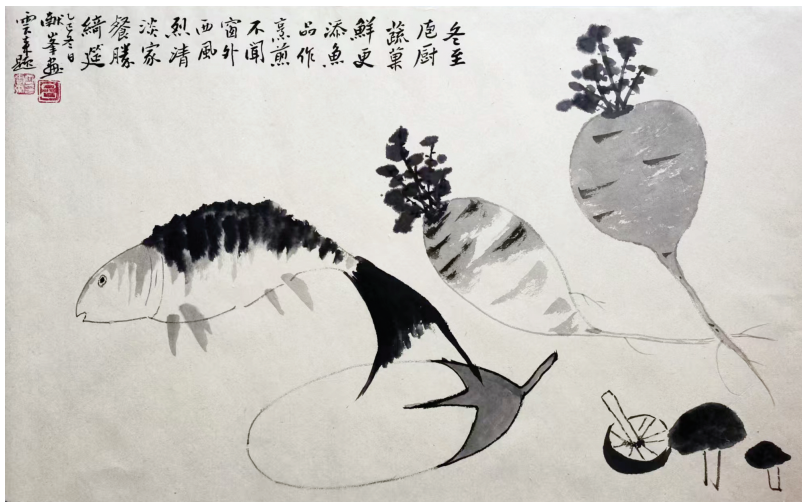 冬至
庖厨
蔬菓
鮮更
添魚
品作
烹煎
不聞
窗外
西風
烈清
淡家
餐勝
綺筵
乙巳冬日
献峯画
雲章題